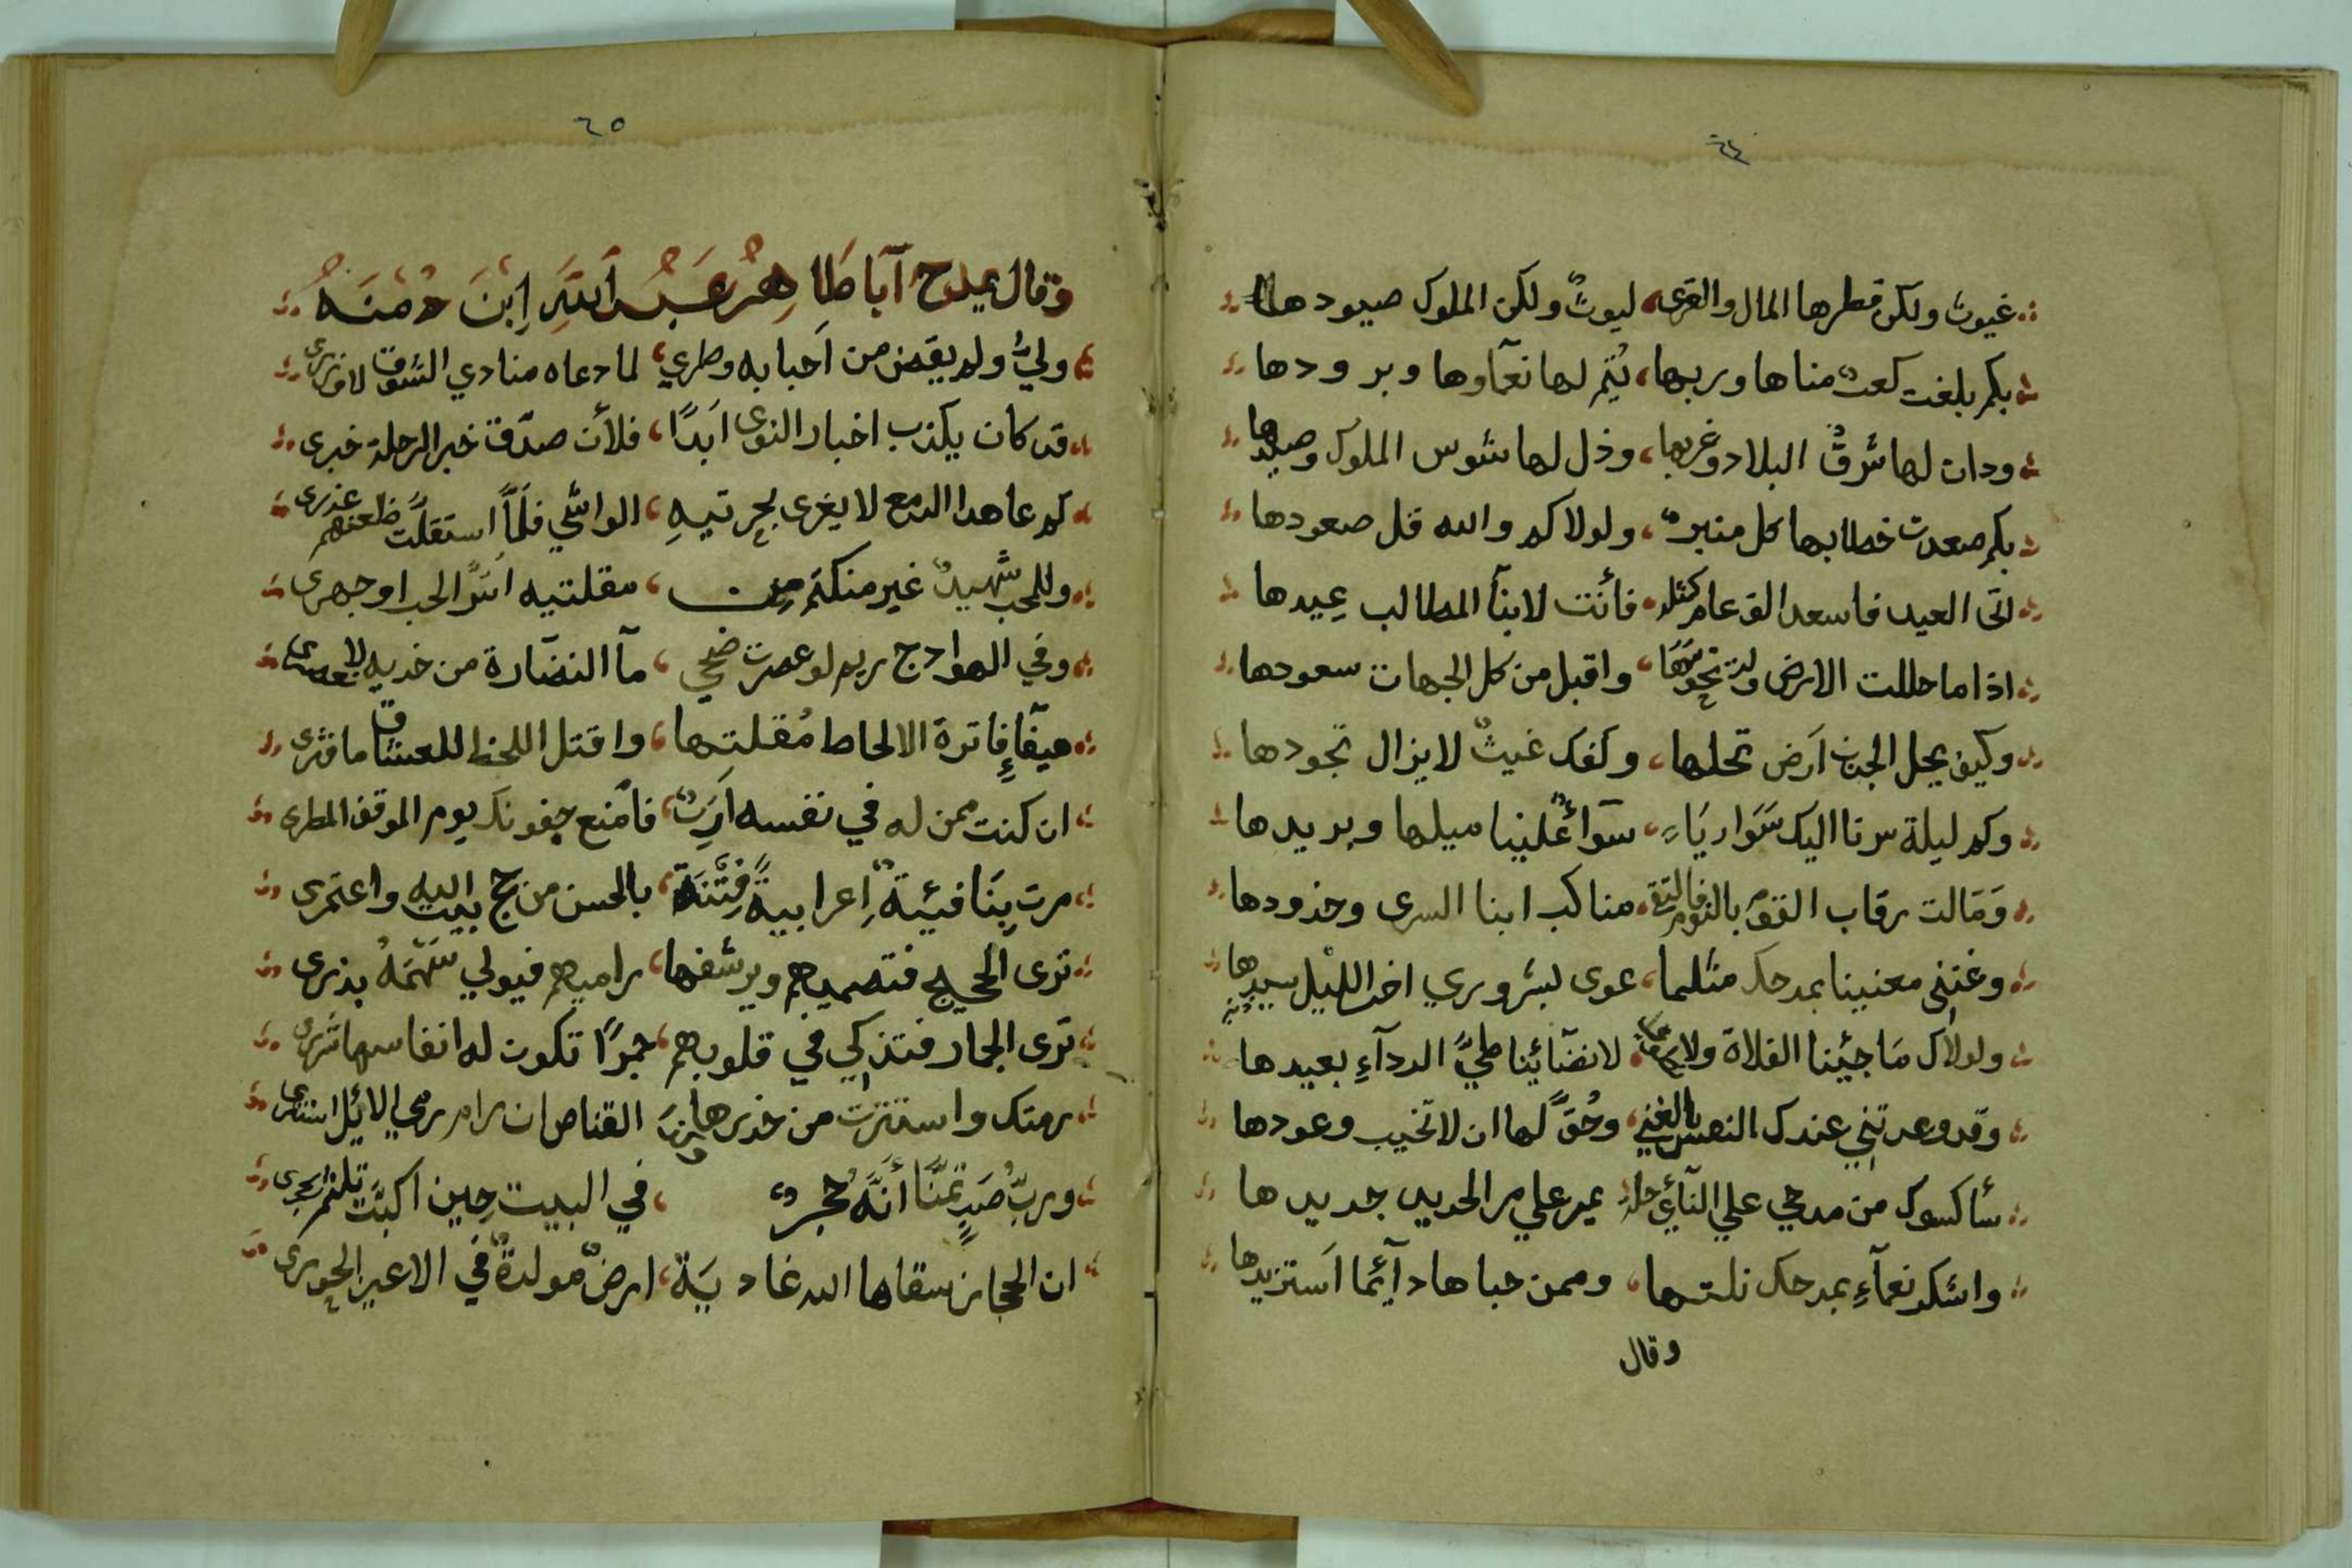 ٦٤
غيوث ولكن قطرها المال والقرى ، ليوث ولكن الملوك صيودها
بكم بلغت كعب مناها وربها ، يتم لها نعمآوها وبرودها
ودان لها شرق البلاد وغربها ، وذل لها شوس الملوك وصيدها
بكم صعدت خطابها كل منبر ، ولولاكم والله قل صعودها
اتى العيد فاسعد الف عام كمثله ، فأنت لابنآ المطالب عيدها
اذا ما حللت الارض نحوسها ، واقبل من كل الجهات سعودها
وكيف يحل الجدب ارض تحلها ، وكفك غيث لا يزال تجودها
وكم ليلة سرنا اليك سوارياً ، سوآ علينا ميلها وبريدها
ومالت رقاب القوم بالنوم فالتقت ، مناكب ابنا السرى وخدودها
وغنى مغنينا بمدحك مثلما ، عوى لبشروري اخر الليل سيدها
ولولاك ما جئنا الفلاة ولا ، لانضآئنا طيّ الردآءِ بعيدها
وقد وعدتني عندك النفس بالغنى ، وحُقّ لها ان لا تخيب وعودها
سأكسوك من مدحي علي النآي حلة يمر علي مر الحديد جديدها
واشكر نعمآءِ بمدحك نلتها ، وممن حباها دآئما استزيدها
وقال
٦٥
وقال يمدح آبا طاهر عبد الله ابن دمنه
ولّي ولم يقض من احبابه وطري ، لما دعاه منادي الشوق لا وزرى
قد كان يكذب اخبار النوى ابدًا ، فلأن صدّق خبر الرحلة خبرى
كم عاهد الدمع لا يغرى بجرتيهِ ، الواشي فلمّا استقلت ظعنهم غدرى
وللمحب شهيد غير منكتم من ، مقلتيه اسرّ الحب او جهرى
وفي الهوادج ريم لو عصرت ضحي ، مآ النضارة من خديه لا نعصرى
هيفآءِ فاترة الالحاط مقلتها ، واقتل اللحظ للعشاق ما فترى
ان كنت ممن له في نفسه ارب ، فامنع جفونك يوم الموقف المطرى
مرت بنا فيئية اعرابية فتنة ، بالحسن من حج بيت الله واعتمرى
ترى الحجيج فتصميهم ويرشفها ، راميهم فيولي سهمه بذرى
ترى الجمار فتذكي في قلوبهم ، جمرًا تكون له انفاسها شررى
رمتك واستترت من خدرها القناص ان رام رمي الايّل استترى
وربّ صيدٍ تمنّا أنّه حجر ، في البيت حين اكبّت تلثم الحجرى
ان الحجاز سقاها الله غادية ، ارض مولدة في الاعين الحورى